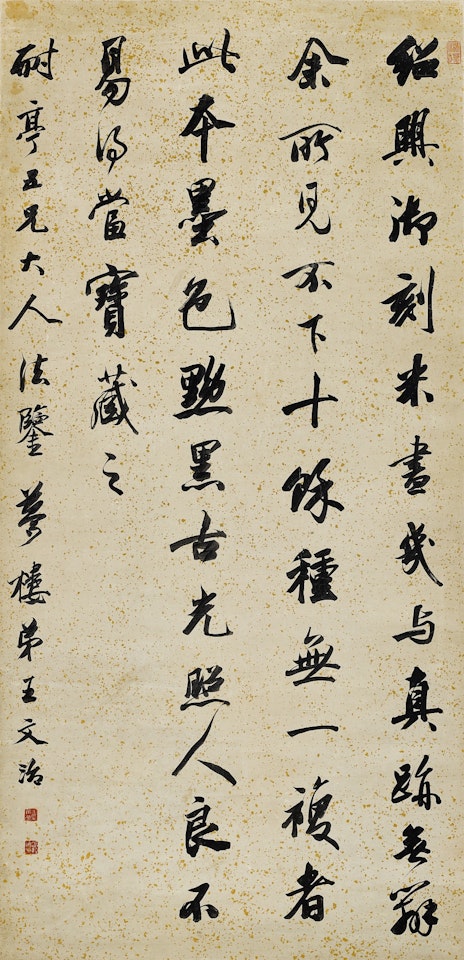 紹興御刻米書幾与真跡無辨
余所見不下十餘種無一複者
此本墨色黝黑古光照人良不
易得當寶藏之
耐亭五兄大人法鑒 夢樓弟王文治